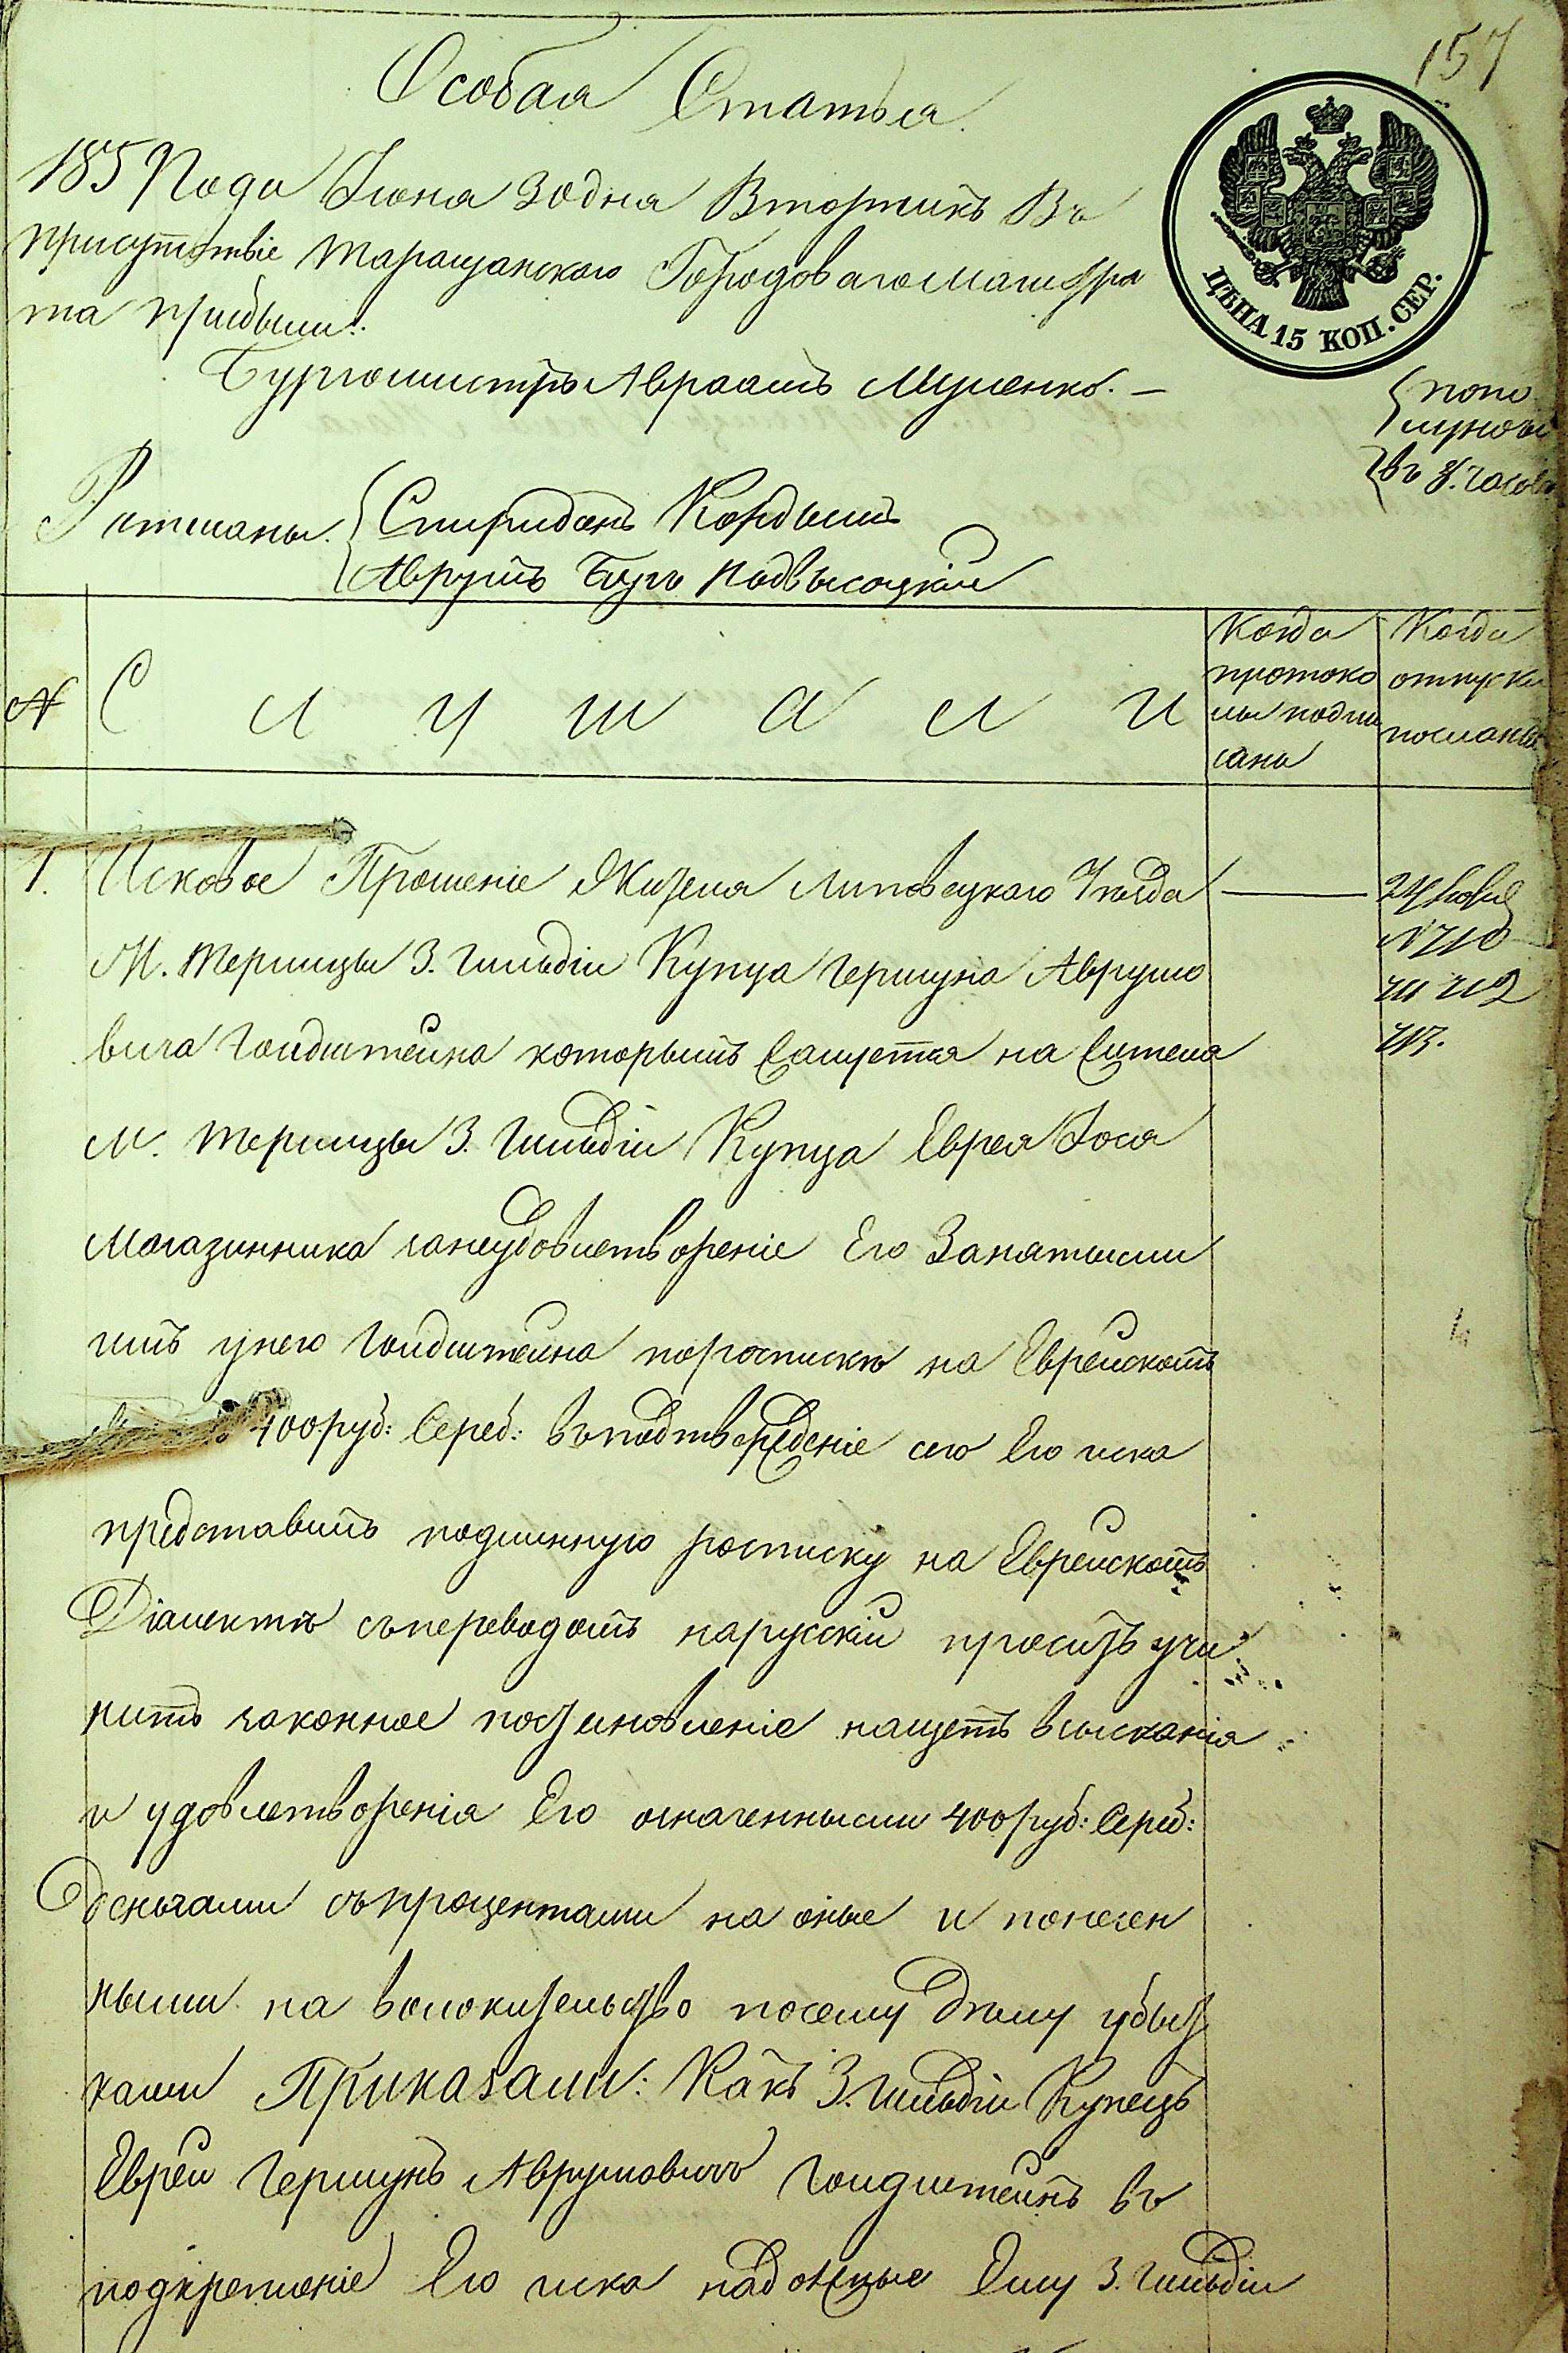 157
Особая Статья.
1857 Года Іюня 30 дня Вторникъ Въ
присутствіе Таращанскаго Городоваго Магистра
та прибыли:
ЦѢНА 15 КОП. СЕР.
Бургомистръ Авраамъ Мусенко. —
попо
луночи
въ 8. часовъ
Ратманы. Спиридонъ Кордышъ
Аврумъ Подвысоцкій
№ Слушали
Когда
протоко
лы подпи
саны
Когда
отпуски
посланы
1. Исковое Прошеніе Жителя Липовецкаго Уѣзда
М. Терлицы 3. Гильдіи Купца Гершуна Аврумо
вича Гольдштейна которымъ на Жителя
М. Терлицы 3. Гильдіи Купца Еврея Іося
Магазинника занеудовлетвореніе Его Занятыми
имъ унего Гольдштейна поросписки на Еврейскомъ
400 руб: Сереб: въ подтвержденіе сего Его иска
представивъ подлинную росписку на Еврейскомъ
Діалектѣ съпереводомъ нарусскій проситъ учи
нить законное постановленіе нащетъ взысканія
и удовлетворенія Его означенными 400 руб: Сереб:
Деньгами съ процентами на оные и понесен
ными на волокительство посему дѣлу убыт
ками Приказали: Какъ 3. Гильдіи Купецъ
Еврей Гершунъ Аврумовичъ Гольдштейнъ въ
подкрепленіе Его иска надолжные Ему 3. Гильдіи